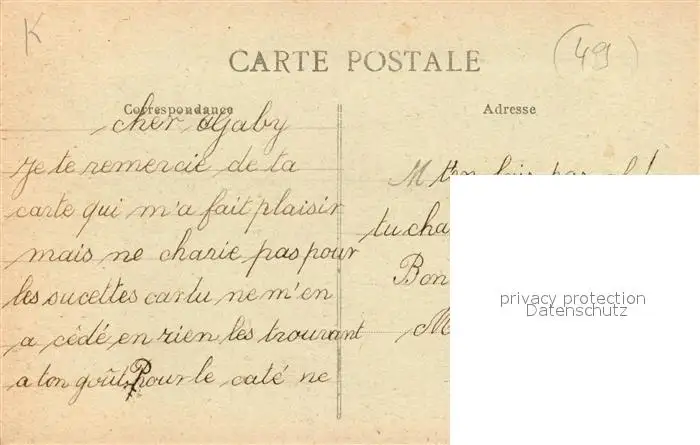 K
(49)
CARTE POSTALE
Correspondance
Adresse
cher Gaby
Je te remercie de ta
carte qui m'a fait plaisir
mais ne charie pas pour
les sucettes car tu ne m'en
a cédé en rien les trouvant
a ton goût Pour le caté ne
M t'en fais pas
tu cha
Bon
M
privacy protection
Datenschutz